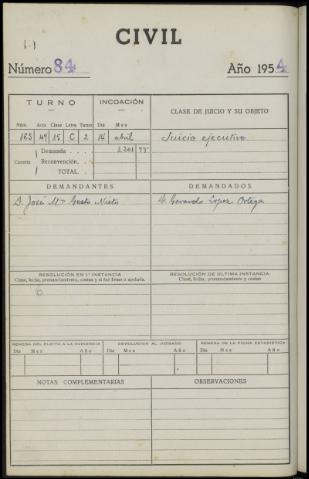 CIVIL
Número 84 Año 1954
TURNO INCOACIÓN CLASE DE JUICIO Y SU OBJETO
Núm. Año Clase Letra Turno Día Mes
163 49 15 C 2 14 abril Juicio ejecutivo
Cuantía Demanda 2.301
Reconvención.
TOTAL.
DEMANDANTES DEMANDADOS
D. José Mª Nieto D. Gerardo López Ortega
RESOLUCIÓN EN 1ª INSTANCIA RESOLUCIÓN DE ÚLTIMA INSTANCIA
Clase, fecha, pronunciamiento, costas y si fué firme o apelada. Clase, fecha, pronunciamiento y costas
REMESA DEL PLEITO A LA AUDIENCIA DEVOLUCIÓN AL JUZGADO REMESA DE LA FICHA ESTADÍSTICA
Día Mes Año Día Mes Año Día Mes Año
NOTAS COMPLEMENTARIAS OBSERVACIONES